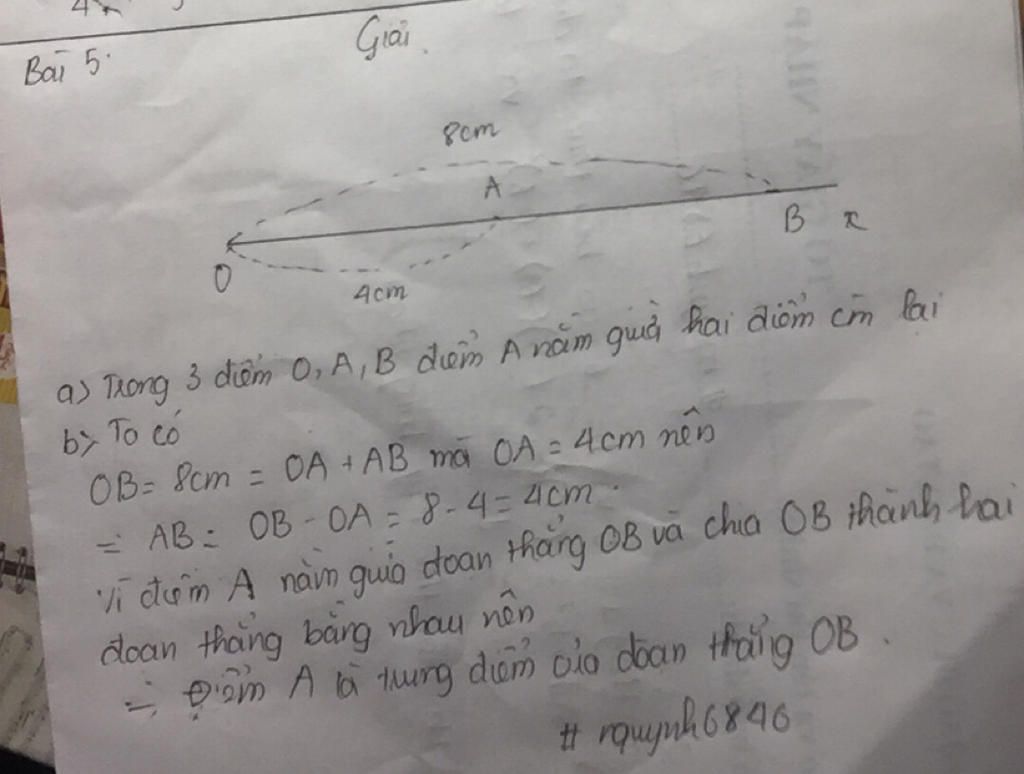 Bài 5.
Giải.
8cm
A
B x
O
4cm
a) Trong 3 điểm O, A, B điểm A nằm giữa hai điểm còn lại
b) Ta có
OB = 8cm = OA + AB mà OA = 4cm nên
=> AB = OB - OA = 8 - 4 = 4cm.
Vì điểm A nằm giữa đoạn thẳng OB và chia OB thành hai
đoạn thẳng bằng nhau nên
=> Điểm A là trung điểm của đoạn thẳng OB.
# rquynh6846